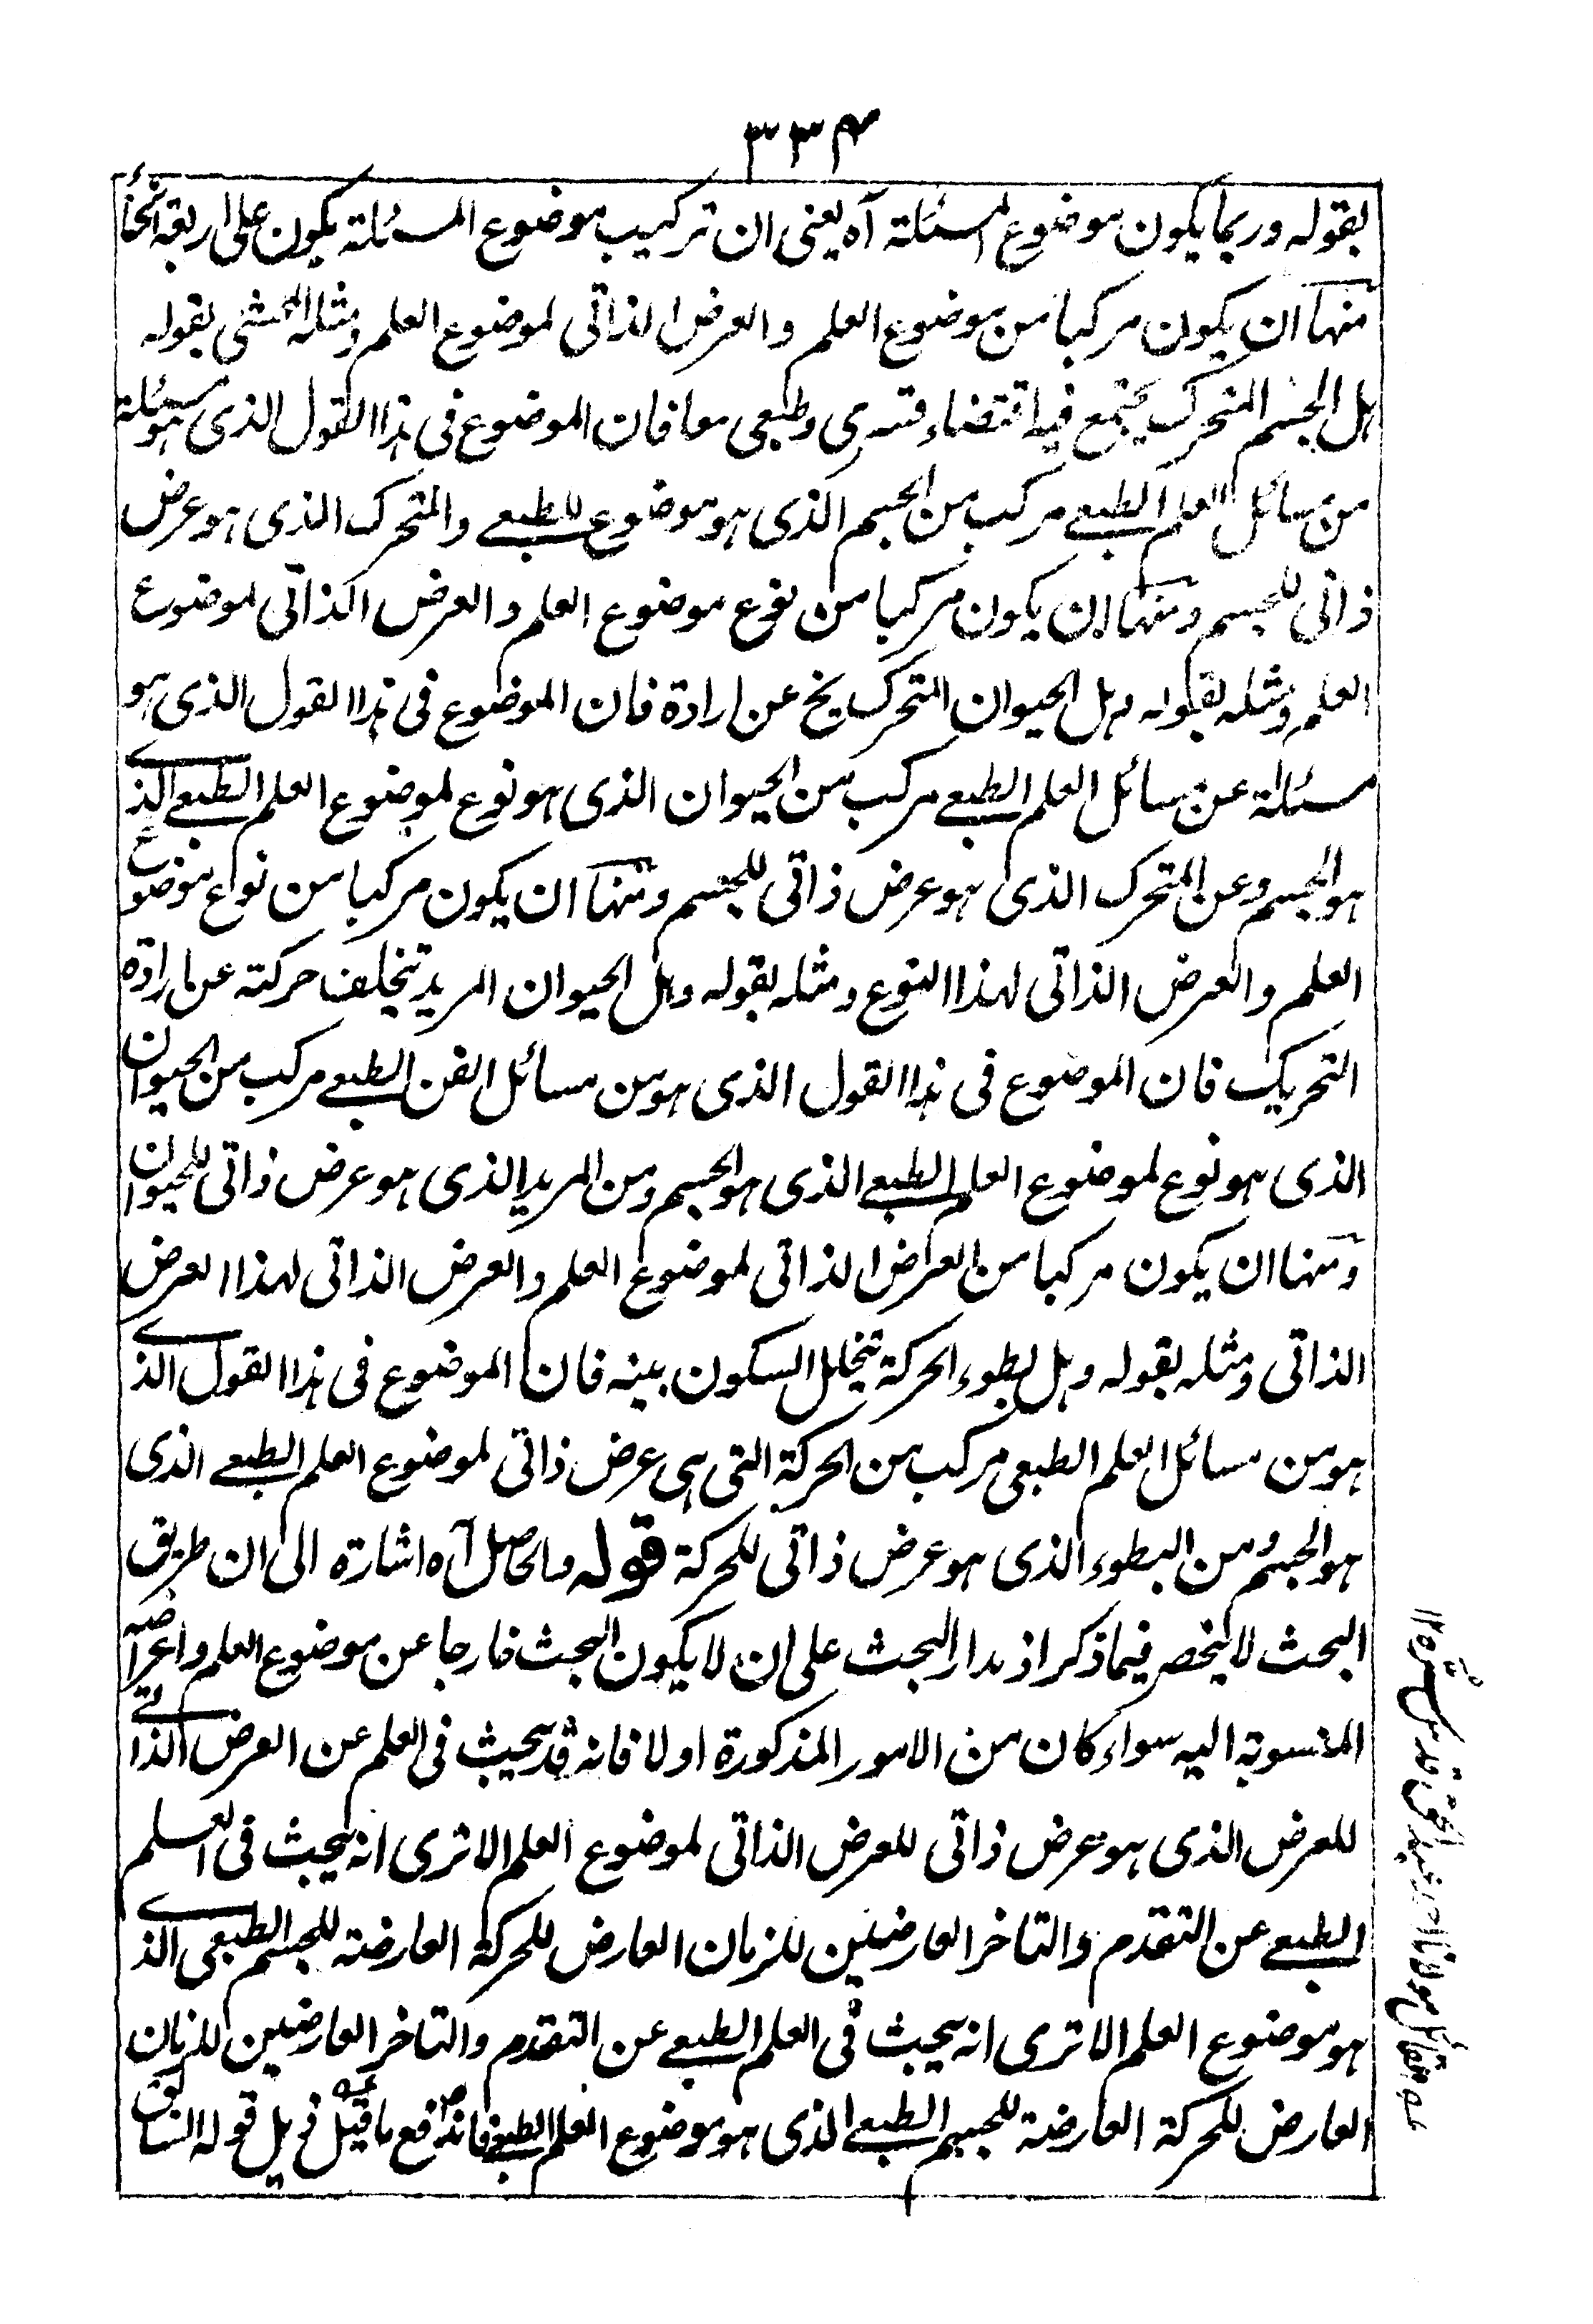 ٣٣٤
بقوله وربما يكون موضوع المسئلة آه يعنى ان تركيب موضوع المسئلة يكون على اربعة انحاء
منها ان يكون مركبا من موضوع العلم والعرض الذاتى لموضوع العلم ومثله المحشى بقوله
هل الجسم المتحرك يجتمع فيه اقتضاء قسرى وطبعى معا فان الموضوع فى هذا القول الذى هو مسئلة
من مسائل العلم الطبعے مركب من الجسم الذى هو موضوع للطبعے والمتحرك الذى هو عرض
ذاتى للجسم ومنها ان يكون مركبا من نوع موضوع العلم والعرض الذاتى لموضوع
العلم ومثله بقوله وہل الحيوان المتحرك يخ عن ارادة فان الموضوع فى هذا القول الذى هو
مسئلة عن مسائل العلم الطبعے مركب من الحيوان الذى هو نوع لموضوع العلم الطبعے الذے
هو الجسم وعن المتحرك الذى هو عرض ذاتى للجسم ومنها ان يكون مركبا من نوع موضوع
العلم والعرض الذاتى لهذا النوع ومثله بقوله وہل الحيوان المريد تتخلف حركته عن ارادة
التحريك فان الموضوع فى هذا القول الذى هو من مسائل الفن الطبعے مركب من الحيوان
الذى هو نوع لموضوع العلم الطبعے الذى هو الجسم ومن المريد الذى هو عرض ذاتى للحيوان
ومنها ان يكون مركبا من العرض الذاتى لموضوع العلم والعرض الذاتى لهذا العرض
الذاتى ومثله بقوله وهل بطوء الحركة تتخلل السكون بينه فان الموضوع فى هذا القول الذے
هو من مسائل العلم الطبعى مركب من الحركة التى هى عرض ذاتى لموضوع العلم الطبعے الذى
هو الجسم ومن البطوء الذى هو عرض ذاتى للحركة قوله والحاصل آه اشارة الى ان طريق
البحث لا ينحصر فيما ذكر اذ مدار البحث على ان لا يكون البحث خارجا عن موضوع العلم واعراضه
المنسوبة اليه سواء كان من الامور المذكورة اولا فانه قد يبحث فى العلم عن العرض الذاتے
للعرض الذى هو عرض ذاتى للعرض الذاتى لموضوع العلم الا ترى انه يبحث فى العلم
الطبعے عن التقدم والتاخر العارضين للزمان العارض للحركة العارضة للجسم الطبعى الذے
هو موضوع العلم الا ترى انه يبحث فى العلم الطبعے عن التقدم والتاخر العارضين للزمان
العارض للحركة العارضة للجسم الطبعے الذى هو موضوع العلم الطبعے فاندفع ما قيل فى ذيل قوله السابق